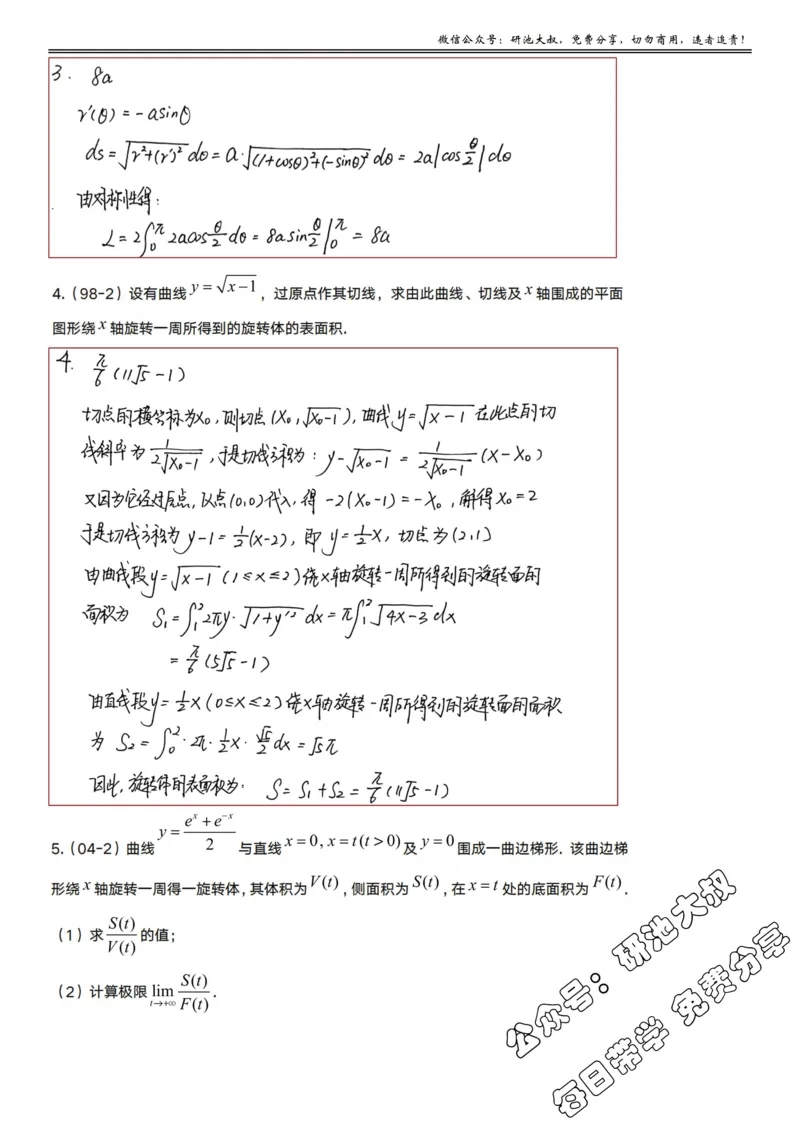 微信公众号：研池大叔，免费分享，切勿商用，违者追责！
3. 8a
r'(θ) = -asinθ
ds = √(r²+(r')²) dθ = a·√((1+cosθ)²+(-sinθ)²) dθ = 2a|cos θ/2| dθ
由对称性得：
L = 2∫₀^π 2acos θ/2 dθ = 8asin θ/2 |₀^π = 8a
4.（98-2）设有曲线 y = √(x-1)，过原点作其切线，求由此曲线、切线及 x 轴围成的平面
图形绕 x 轴旋转一周所得到的旋转体的表面积.
4. π/6 (11√5-1)
切点的横坐标为x₀, 则切点 (x₀, √(x₀-1)), 曲线 y=√(x-1) 在此点的切
线斜率为 1/(2√(x₀-1)), 于是切线方程为: y-√(x₀-1) = 1/(2√(x₀-1)) (x-x₀)
又因为它经过原点, 以点(0,0)代入, 得 -2(x₀-1) = -x₀, 解得 x₀=2
于是切线方程为 y-1 = 1/2(x-2), 即 y = 1/2x, 切点为 (2,1)
由曲线段y=√(x-1) (1≤x≤2)绕x轴旋转一周所得到的旋转面的
面积为 S₁ = ∫₁² 2πy·√(1+y'²) dx = π∫₁² √(4x-3) dx
= π/6 (5√5-1)
由直线段y=1/2x (0≤x≤2)绕x轴旋转一周所得到的旋转面的面积
为 S₂ = ∫₀² ·2π·1/2x·√5/2 dx = √5π
因此, 旋转体的表面积为: S = S₁+S₂ = π/6 (11√5-1)
5.（04-2）曲线 y = (eˣ+e⁻ˣ)/2 与直线 x=0, x=t(t>0) 及 y=0 围成一曲边梯形. 该曲边梯
形绕 x 轴旋转一周得一旋转体, 其体积为 V(t), 侧面积为 S(t), 在 x=t 处的底面积为 F(t).
（1）求 S(t)/V(t) 的值；
（2）计算极限 lim t→+∞ S(t)/F(t).
公众号：研池大叔
每日带学 免费分享